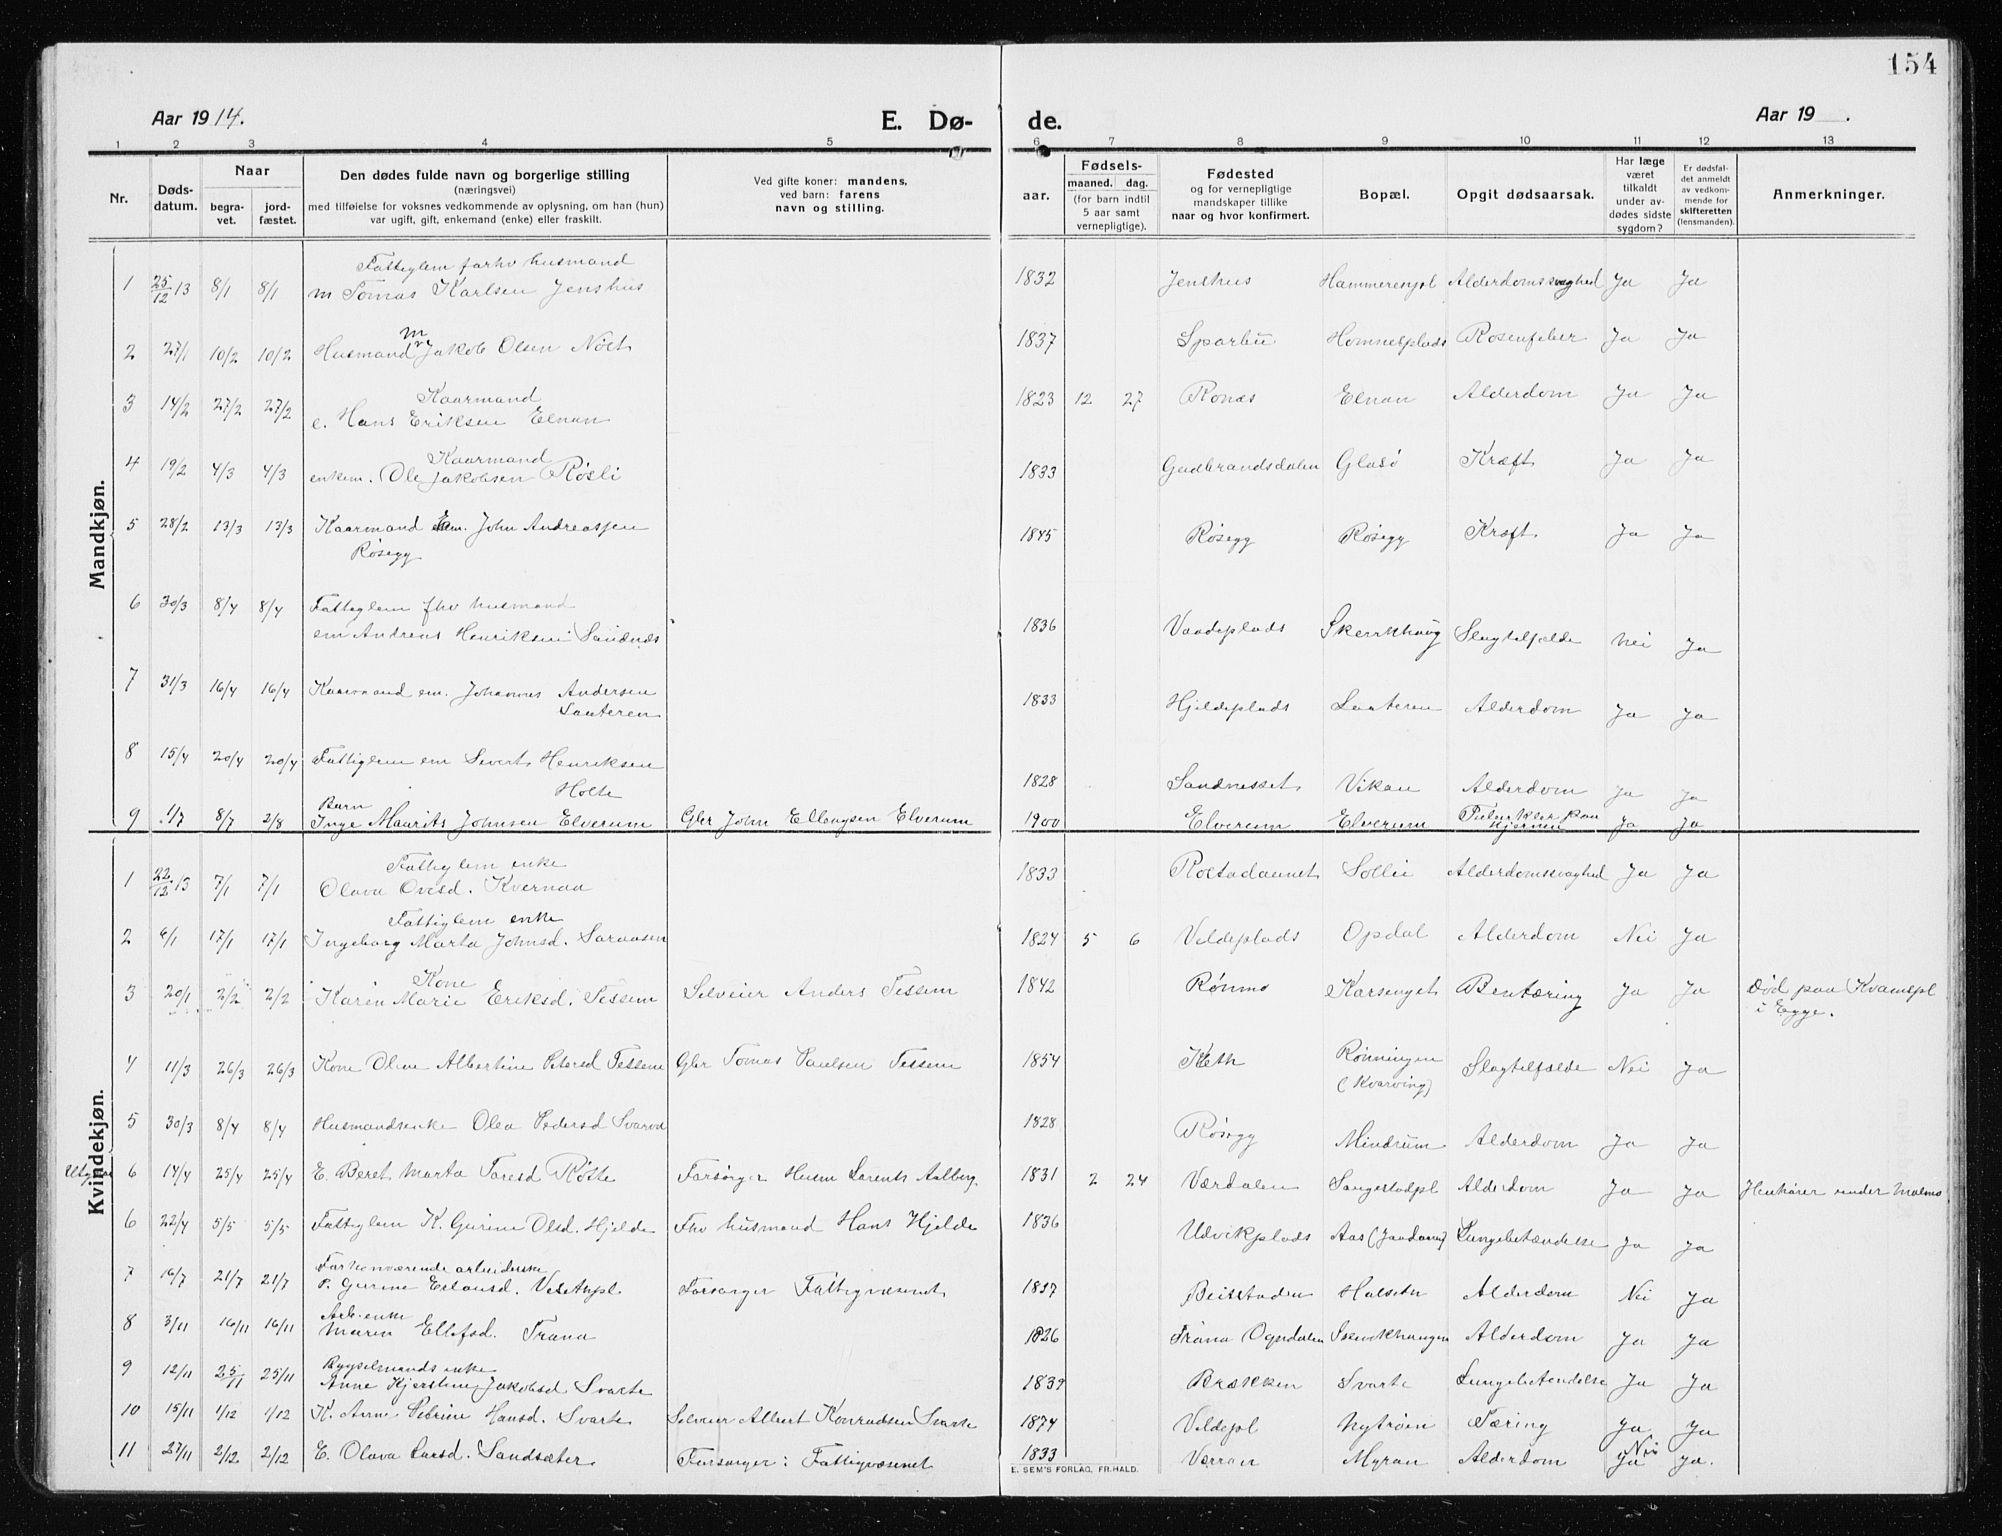 154
Aar 1914. E. Dø- de. Aar 19 .
1 2 3 4 5 6 7 8 9 10 11 12 13
Nr.
Døds-
datum.
Naar
begra-
vet.
jord-
fæstet.
Den dødes fulde navn og borgerlige stilling
(næringsvei)
med tilføielse for voksnes vedkommende av oplysning, om han (hun)
var ugift, gift, enkemand (enke) eller fraskilt.
Ved gifte koner: mandens,
ved barn: farens
navn og stilling.
Fødsels-
aar.
maaned. dag.
(for barn indtil
5 aar samt
vernepligtige).
Fødested
og for vernepligtige
mandskaper tillike
naar og hvor konfirmert.
Bopæl.
Opgit dødsaarsak.
Har læge
været
tilkaldt
under av-
dødes sidste
sygdom?
Er dødsfal-
det anmeldt
av vedkom-
mende for
skifteretten
(lensmanden).
Anmerkninger.
Mandkjøn.
Fattiglem forhv husmand
1 25/12 13 8/1 8/1 m Tomas Karlsen Jenshus 1832 Jenshus Hammerenspl Alderdomssvaghed Ja Ja
2 27/1 10/2 10/2 Husmand m Jakob Olsen Nøst 1837 Sparbu Hommelplads Rosenfeber Ja Ja
Kaarmand
3 14/2 27/2 27/2 e. Hans Eriksen Elnan 1823 12 27 Ronæs Elnan Alderdom Ja Ja
Kaarmand
4 19/2 4/3 4/3 enkem. Ole Jakobsen Røsli 1833 Gudbrandsdalen Glasø Kræft Ja Ja
5 28/2 13/3 13/3 Kaarmand em. John Andreassen
Røsegg 1845 Røsegg Røsegg Kræft Ja Ja
6 30/3 8/4 8/4 Fattiglem fhv husmand
em Andreas Henriksen Sandnæs 1836 Vaadeplads Skerkhaug Slagtilfælde Nei Ja
7 31/3 16/4 16/4 Kaarmand em. Johannes Andersen
Lauteren 1833 Hjeldeplads Lauteren Alderdom Ja Ja
8 15/4 20/4 20/4 Fattiglem em Sivert Henriksen
Holte 1828 Sandnesset Vikan Alderdom Ja Ja
Barn
9 1/7 8/7 2/8 Inge Maurits Johnsen Elverum Gbr John Ellingsen Elverum 1900 Elverum Elverum Tuberkler paa
hjernen Ja Ja
Kvindekjøn.
Fattiglem enke
1 22/12 13 7/1 7/1 Olava Ovesd. Kvernaa 1833 Rolstadaunet Sollii Alderdomssvaghed Ja Ja
Fattiglem enke
2 6/1 17/1 17/1 Ingeborg Marta Johnsd. Saraasen 1824 5 6 Veldeplads Opdal Alderdom Nei Ja
Kone
3 20/1 2/2 2/2 Karen Marie Eriksd. Tessem Selveier Anders Tessem 1842 Rønmo Karsenget Bentæring Ja Ja Død paa Kvamspl
i Egge.
4 11/3 26/3 26/3 Kone Oline Albertine Petersd Tessem Gbr Tomas Paulsen Tessem 1854 Keth Rønningen
(Kvarving) Slagtilfælde Nei Ja
5 30/3 8/4 8/4 Husmandsenke Olea Pedersd Svarva 1828 Røsegg Mindrum Alderdom Ja Ja
6 14/4 25/4 25/4 E. Beret Marta Toresd Røtte Forsørger Husm Lorents Aalberg. 1831 2 24 Værdalen Sangestadpl Alderdom Ja Ja Henhører under Malms
6 22/4 5/5 5/5 Fattiglem K. Gurine Olsd. Hjelde Fhv husmand Hans Hjelde 1836 Udvikplads Aas Lungebetændelse Ja Ja
Forhenværende arbeiderske
7 16/7 21/7 21/7 P. Gurine Erlansd. Forsørger Fattigvæsenet 1837 Beitstaden Halseth Alderdom Nei Ja
Arb. enke
8 3/11 16/11 16/11 Maren Ellefsd. Trana 1826 Trana Ogndalen Skerkhaugen Alderdom Ja Ja
Bygselmands enke
9 12/11 25/11 25/11 Anne Kjerstine Jakobsd Svarte 1839 Brækken Svarte Lungebetendelse Ja Ja
10 15/11 1/12 1/12 K. Anne Petrine Hansd. Svarte Selveier Albert Konradsen Svarte 1874 Veldepl Nytrøen Tæring Ja Ja
11 27/11 2/12 2/12 E. Olava Larsd. Sandsæter Forsørger: Fattigvæsenet 1833 Verran Myran Alderdom Ja Nei Ja.
E. SEM'S FORLAG, FR.HALD.